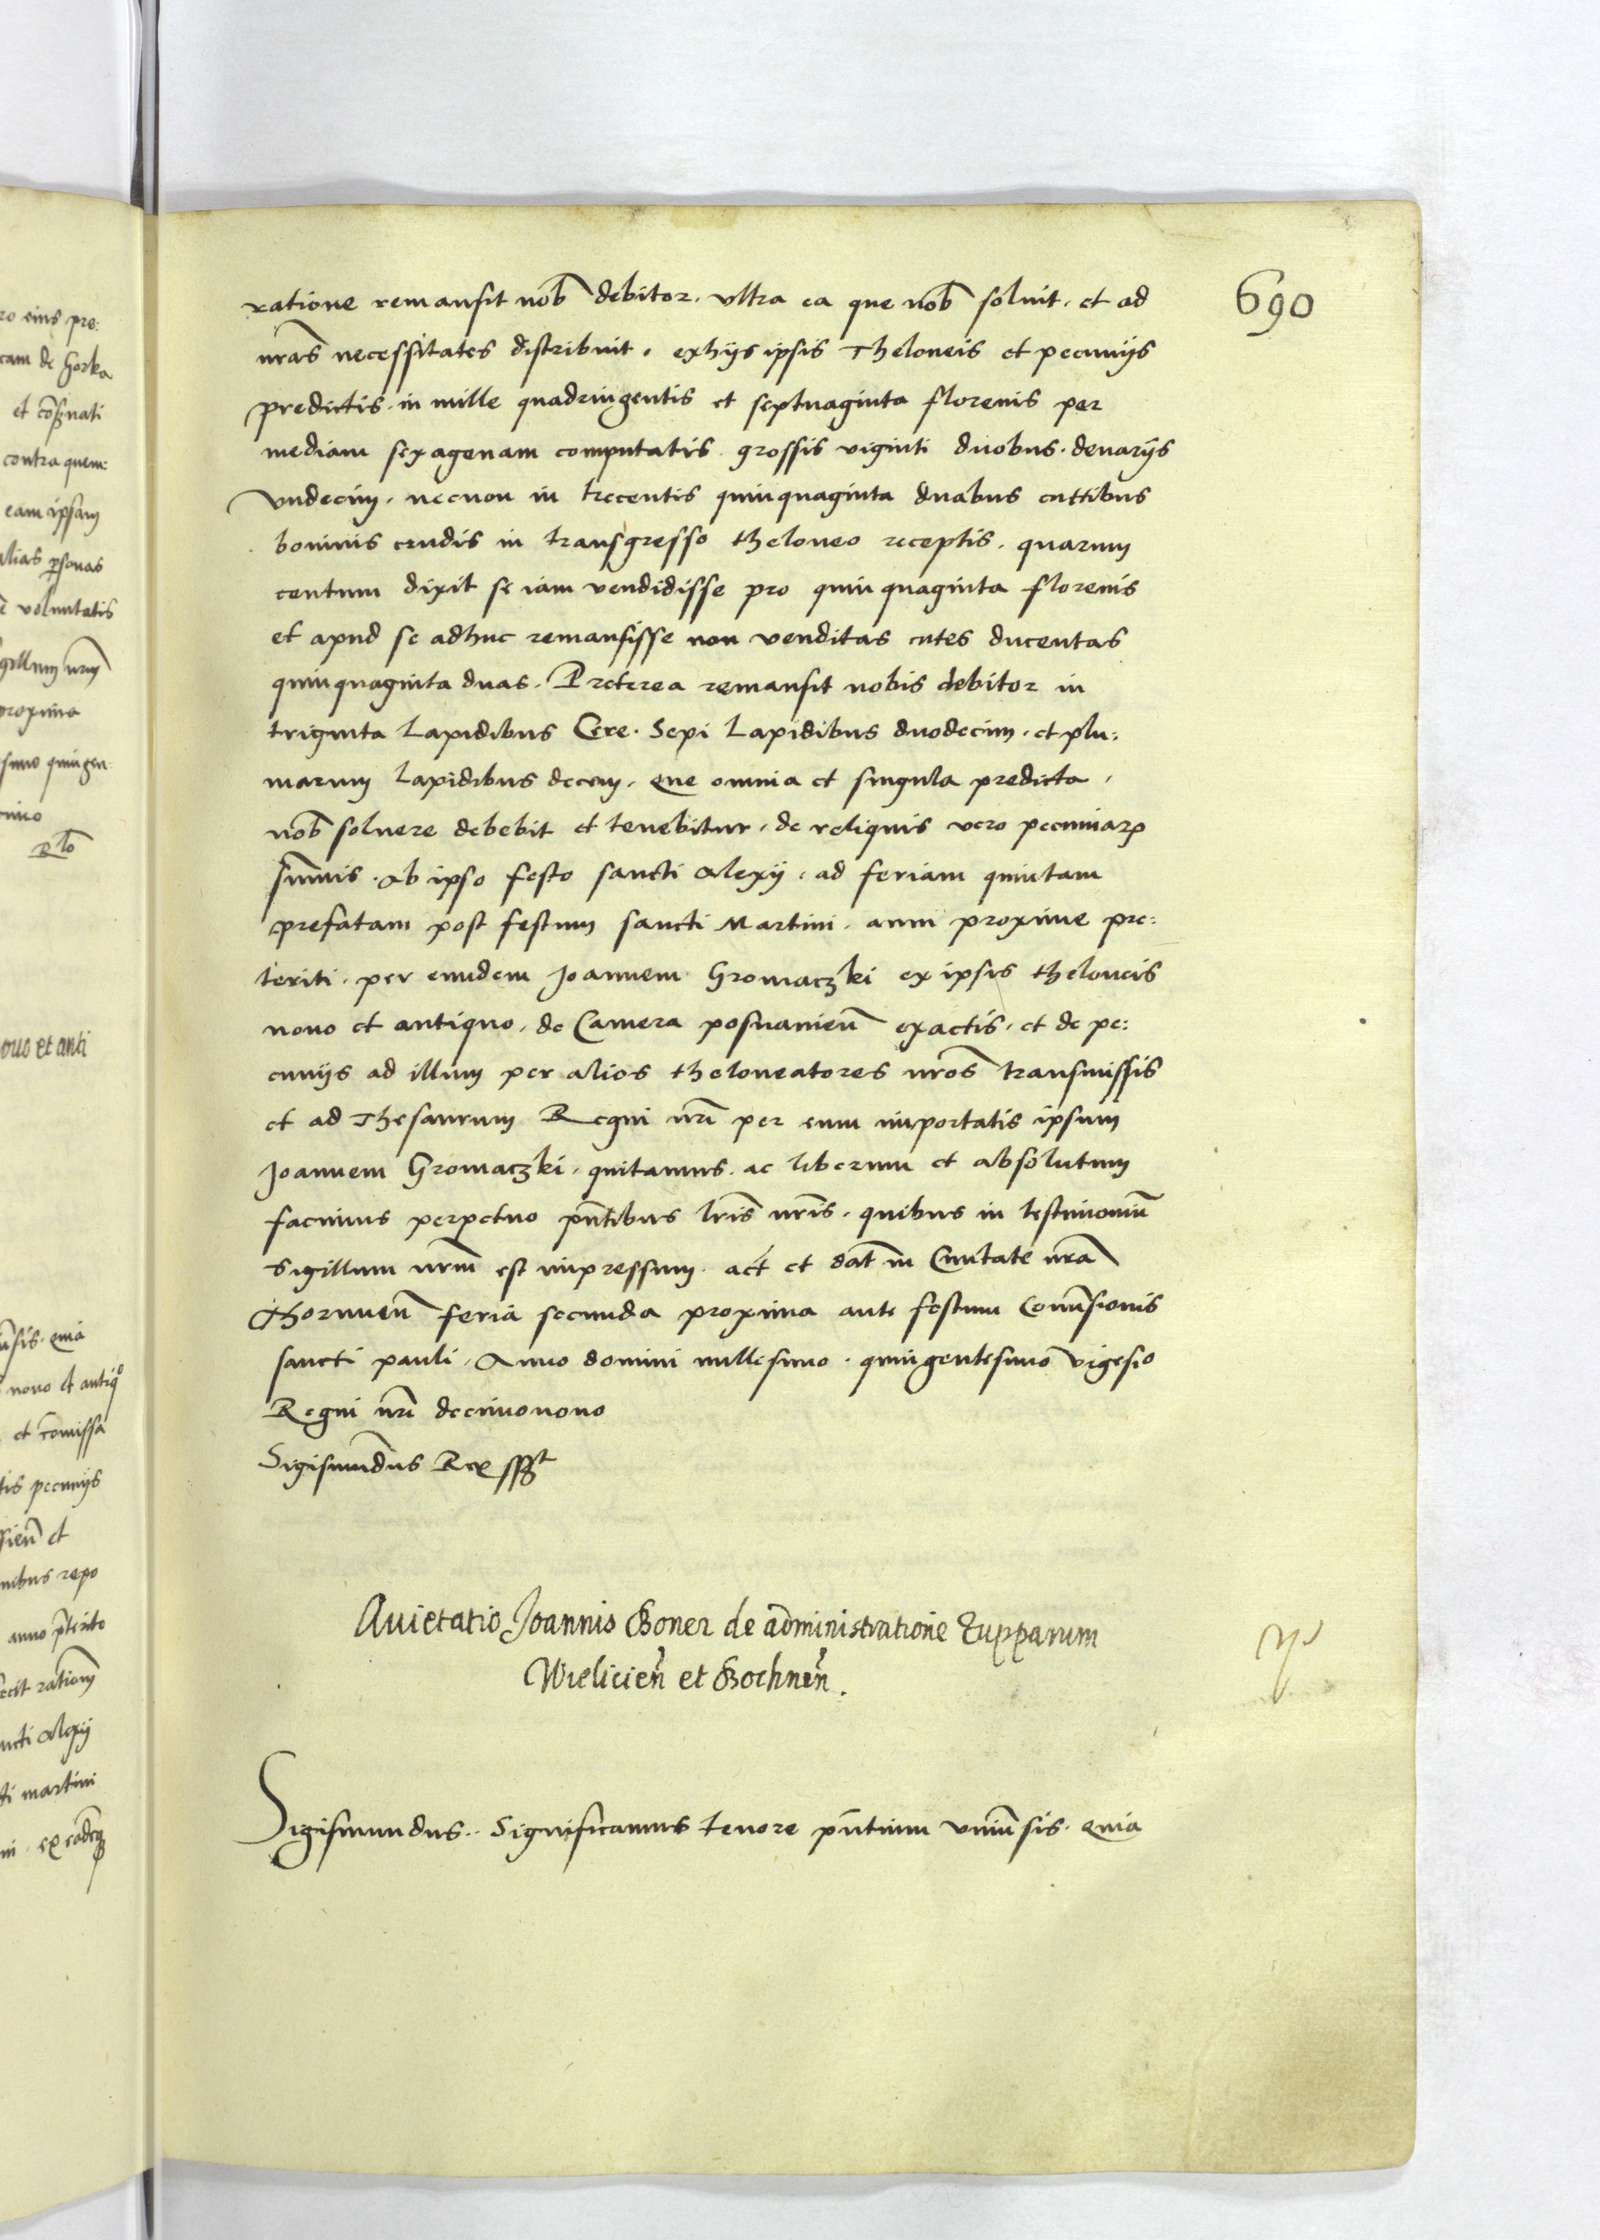 690
ratione remansit nob debitor. vltra ea que nob soluit. et ad
nras necessitates distribuit. exhijs ipsis Theloneis et pecunijs
predictis. in mille quadringentis et septuaginta florenis per
mediam sexagenam computatis. grossis viginti duobus. denarijs
vndecim. necnon in trecentis quinquaginta duabus cuttibus
bouinis crudis in transgresso theloneo receptis. quarum
centum dixit se iam vendidisse pro quinquaginta florenis
et apud se adhuc remansisse non venditas cutes ducentas
quinquaginta duas. Preterea remansit nobis debitor in
triginta Lapidibus Cere. Sepi Lapidibus duodecim. et plu:
marum Lapidibus decem. que omnia et singula predicta.
nob soluere debebit et tenebitur. de reliquis vero pecuniar
summis. ab ipso festo sancti Alexij. ad feriam quintam
prefatam post festum sancti Martini. anni proxime pre:
teriti. per eundem Joannem Gromaczki ex ipsis theloneis
nouo et antiquo. de Camera posnanien exactis. et de pe:
cunijs ad illum per alios theloneatores nros transmissis
et ad Thesaurum Regni nri per eum importatis ipsum
Joannem Gromaczki. quitamus. ac liberum et absolutum
facimus perpetuo pntibus lris nris. quibus in testimoniu
Sigillum nrm est impressum. act et dat in Ciuitate nra
Thorunen feria secunda proxima ante festum Conuersionis
sancti pauli. Anno domini millesimo. quingentesimo vigesio
Regni nri decimonono
Sigismundus Rex sst
Quietatio Joannis Boner de administratione Zupparum
Wielicien et Bochnen.
Sigismundus.. Significamus tenore pntium vniuersis. quia